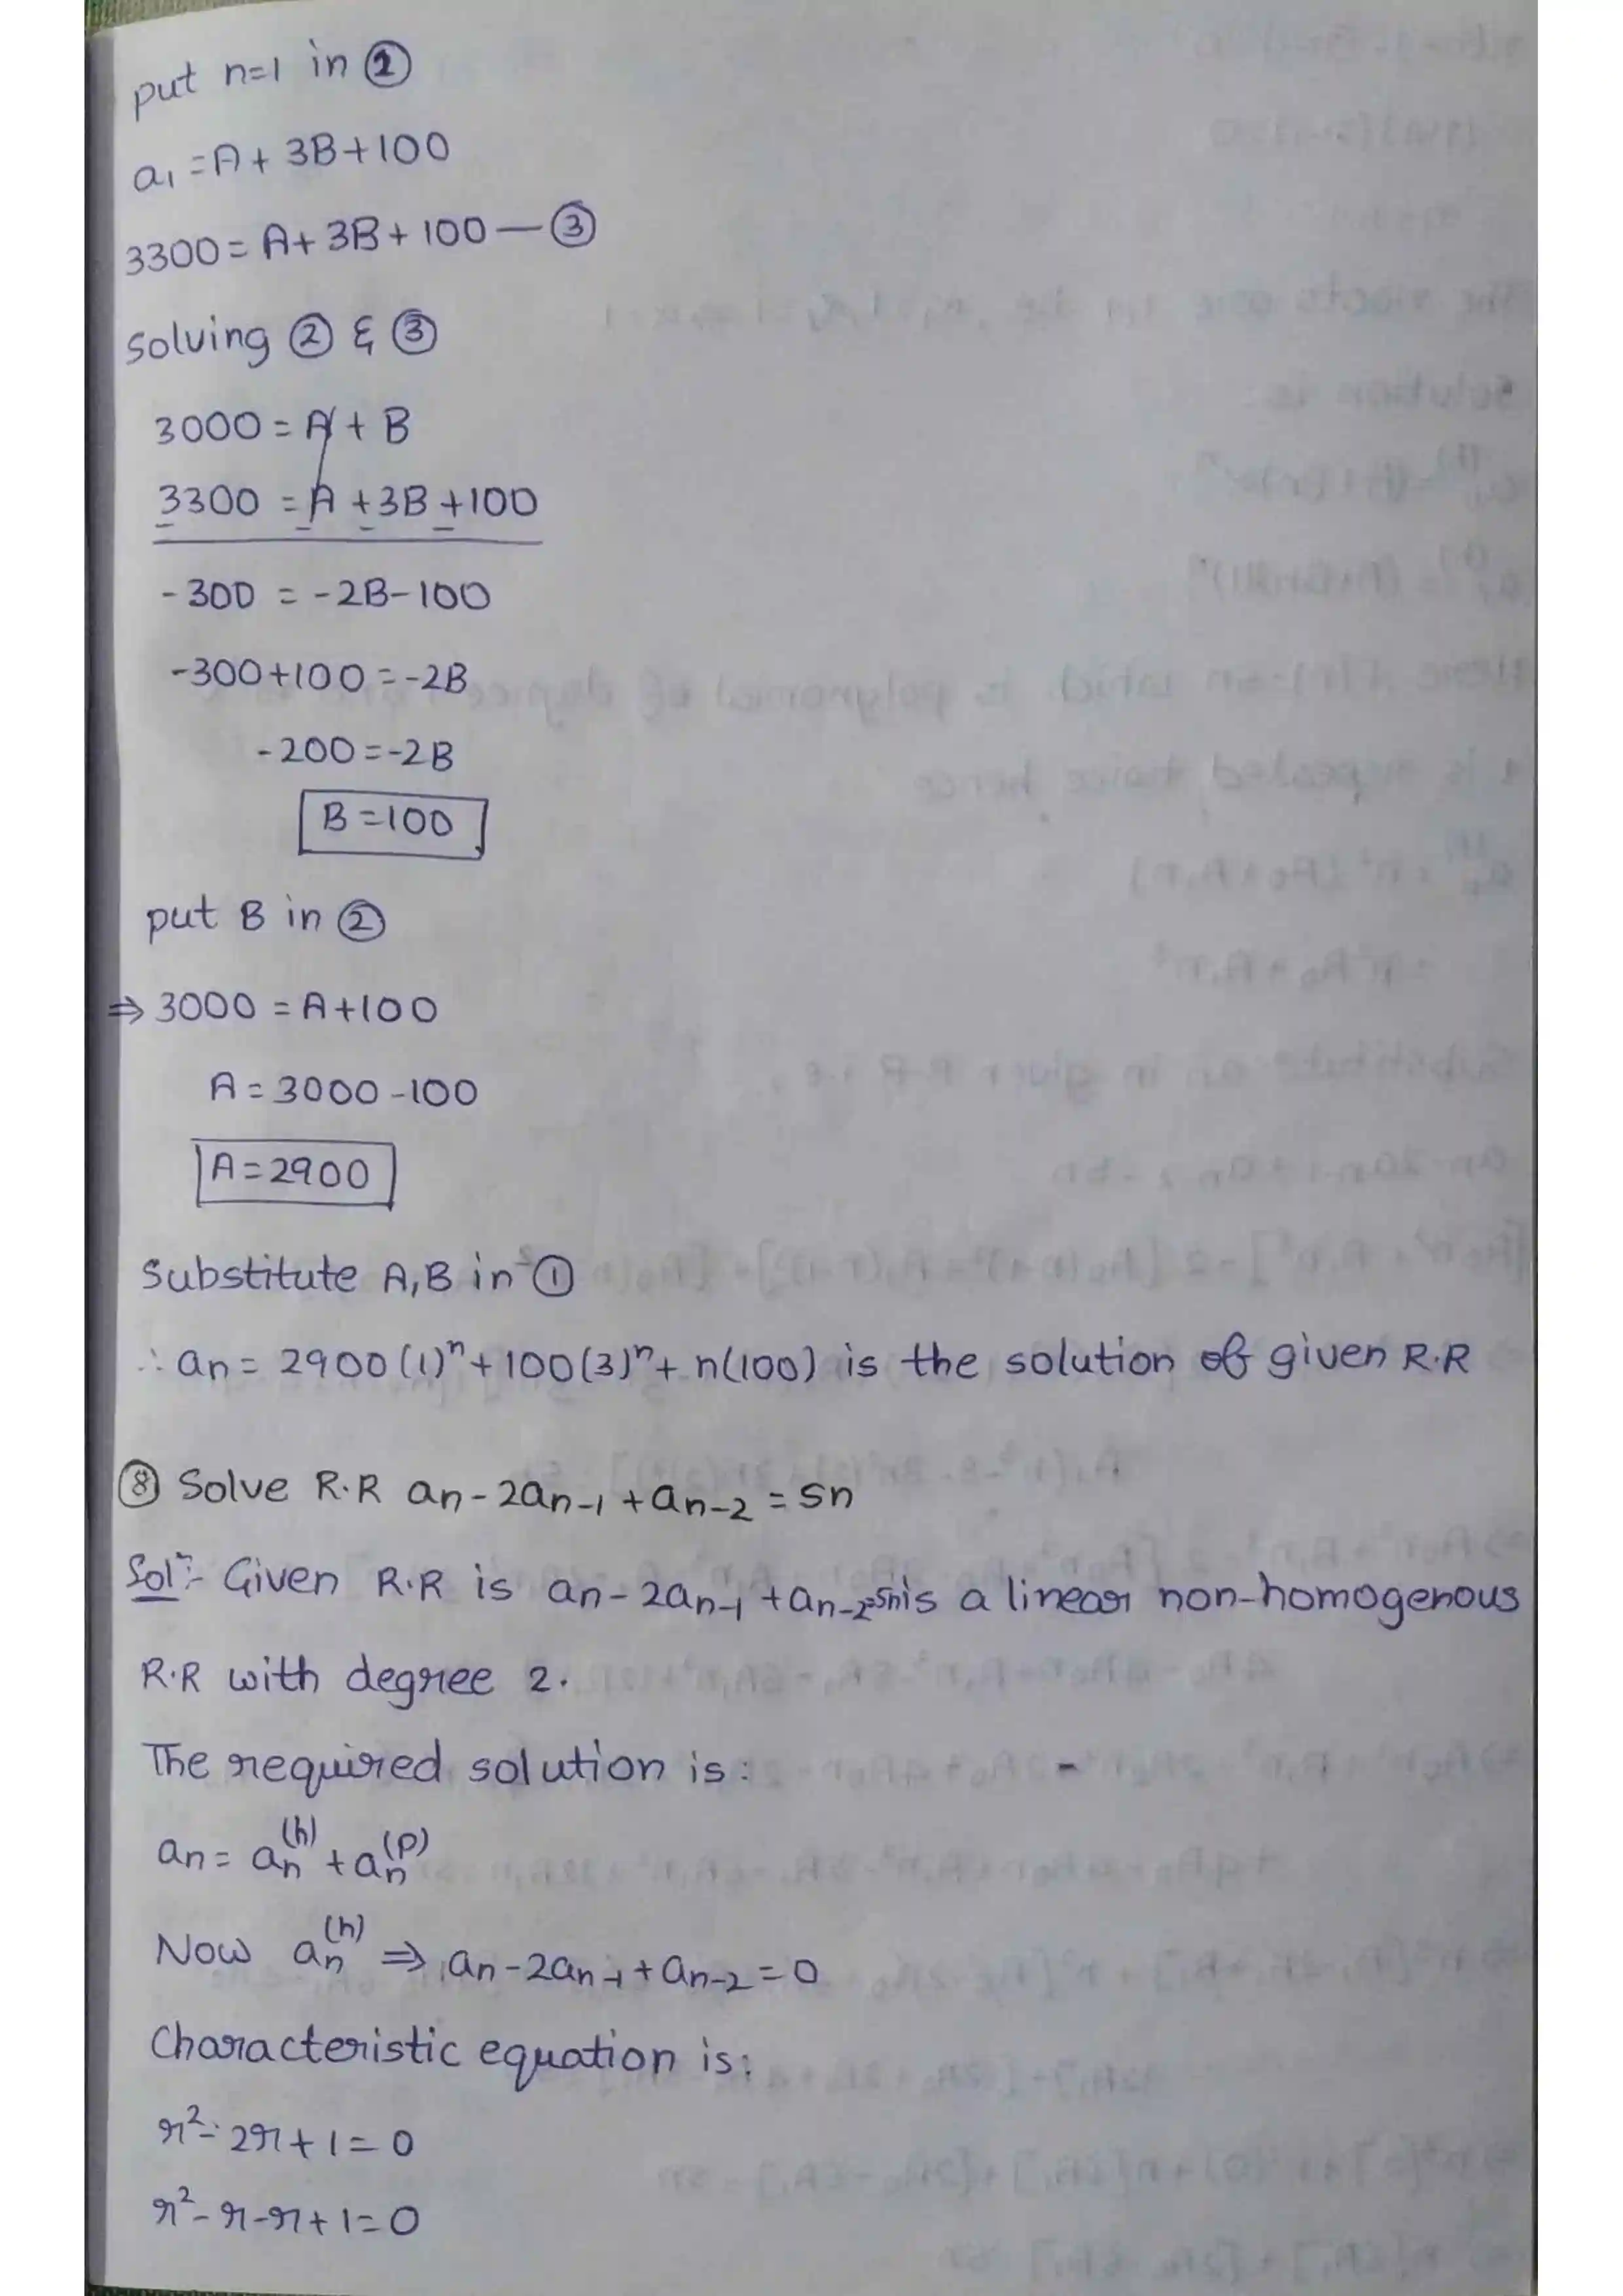 put n=1 in ②
a₁ = A + 3B + 100
3300 = A + 3B + 100 — ③
solving ② & ③
3000 = A + B
3300 = A + 3B + 100
- - - -
-300 = -2B - 100
-300 + 100 = -2B
-200 = -2B
B = 100
put B in ②
⇒ 3000 = A + 100
A = 3000 - 100
A = 2900
Substitute A, B in ①
∴ an = 2900 (1)ⁿ + 100 (3)ⁿ + n(100) is the solution of given R.R
⑧ Solve R.R an - 2an-1 + an-2 = 5n
Solⁿ:- Given R.R is an - 2an-1 + an-2 = 5n is a linear non-homogenous
R.R with degree 2.
The required solution is:
an = an(h) + an(p)
Now an(h) ⇒ an - 2an-1 + an-2 = 0
Characteristic equation is:
r² - 2r + 1 = 0
r² - r - r + 1 = 0